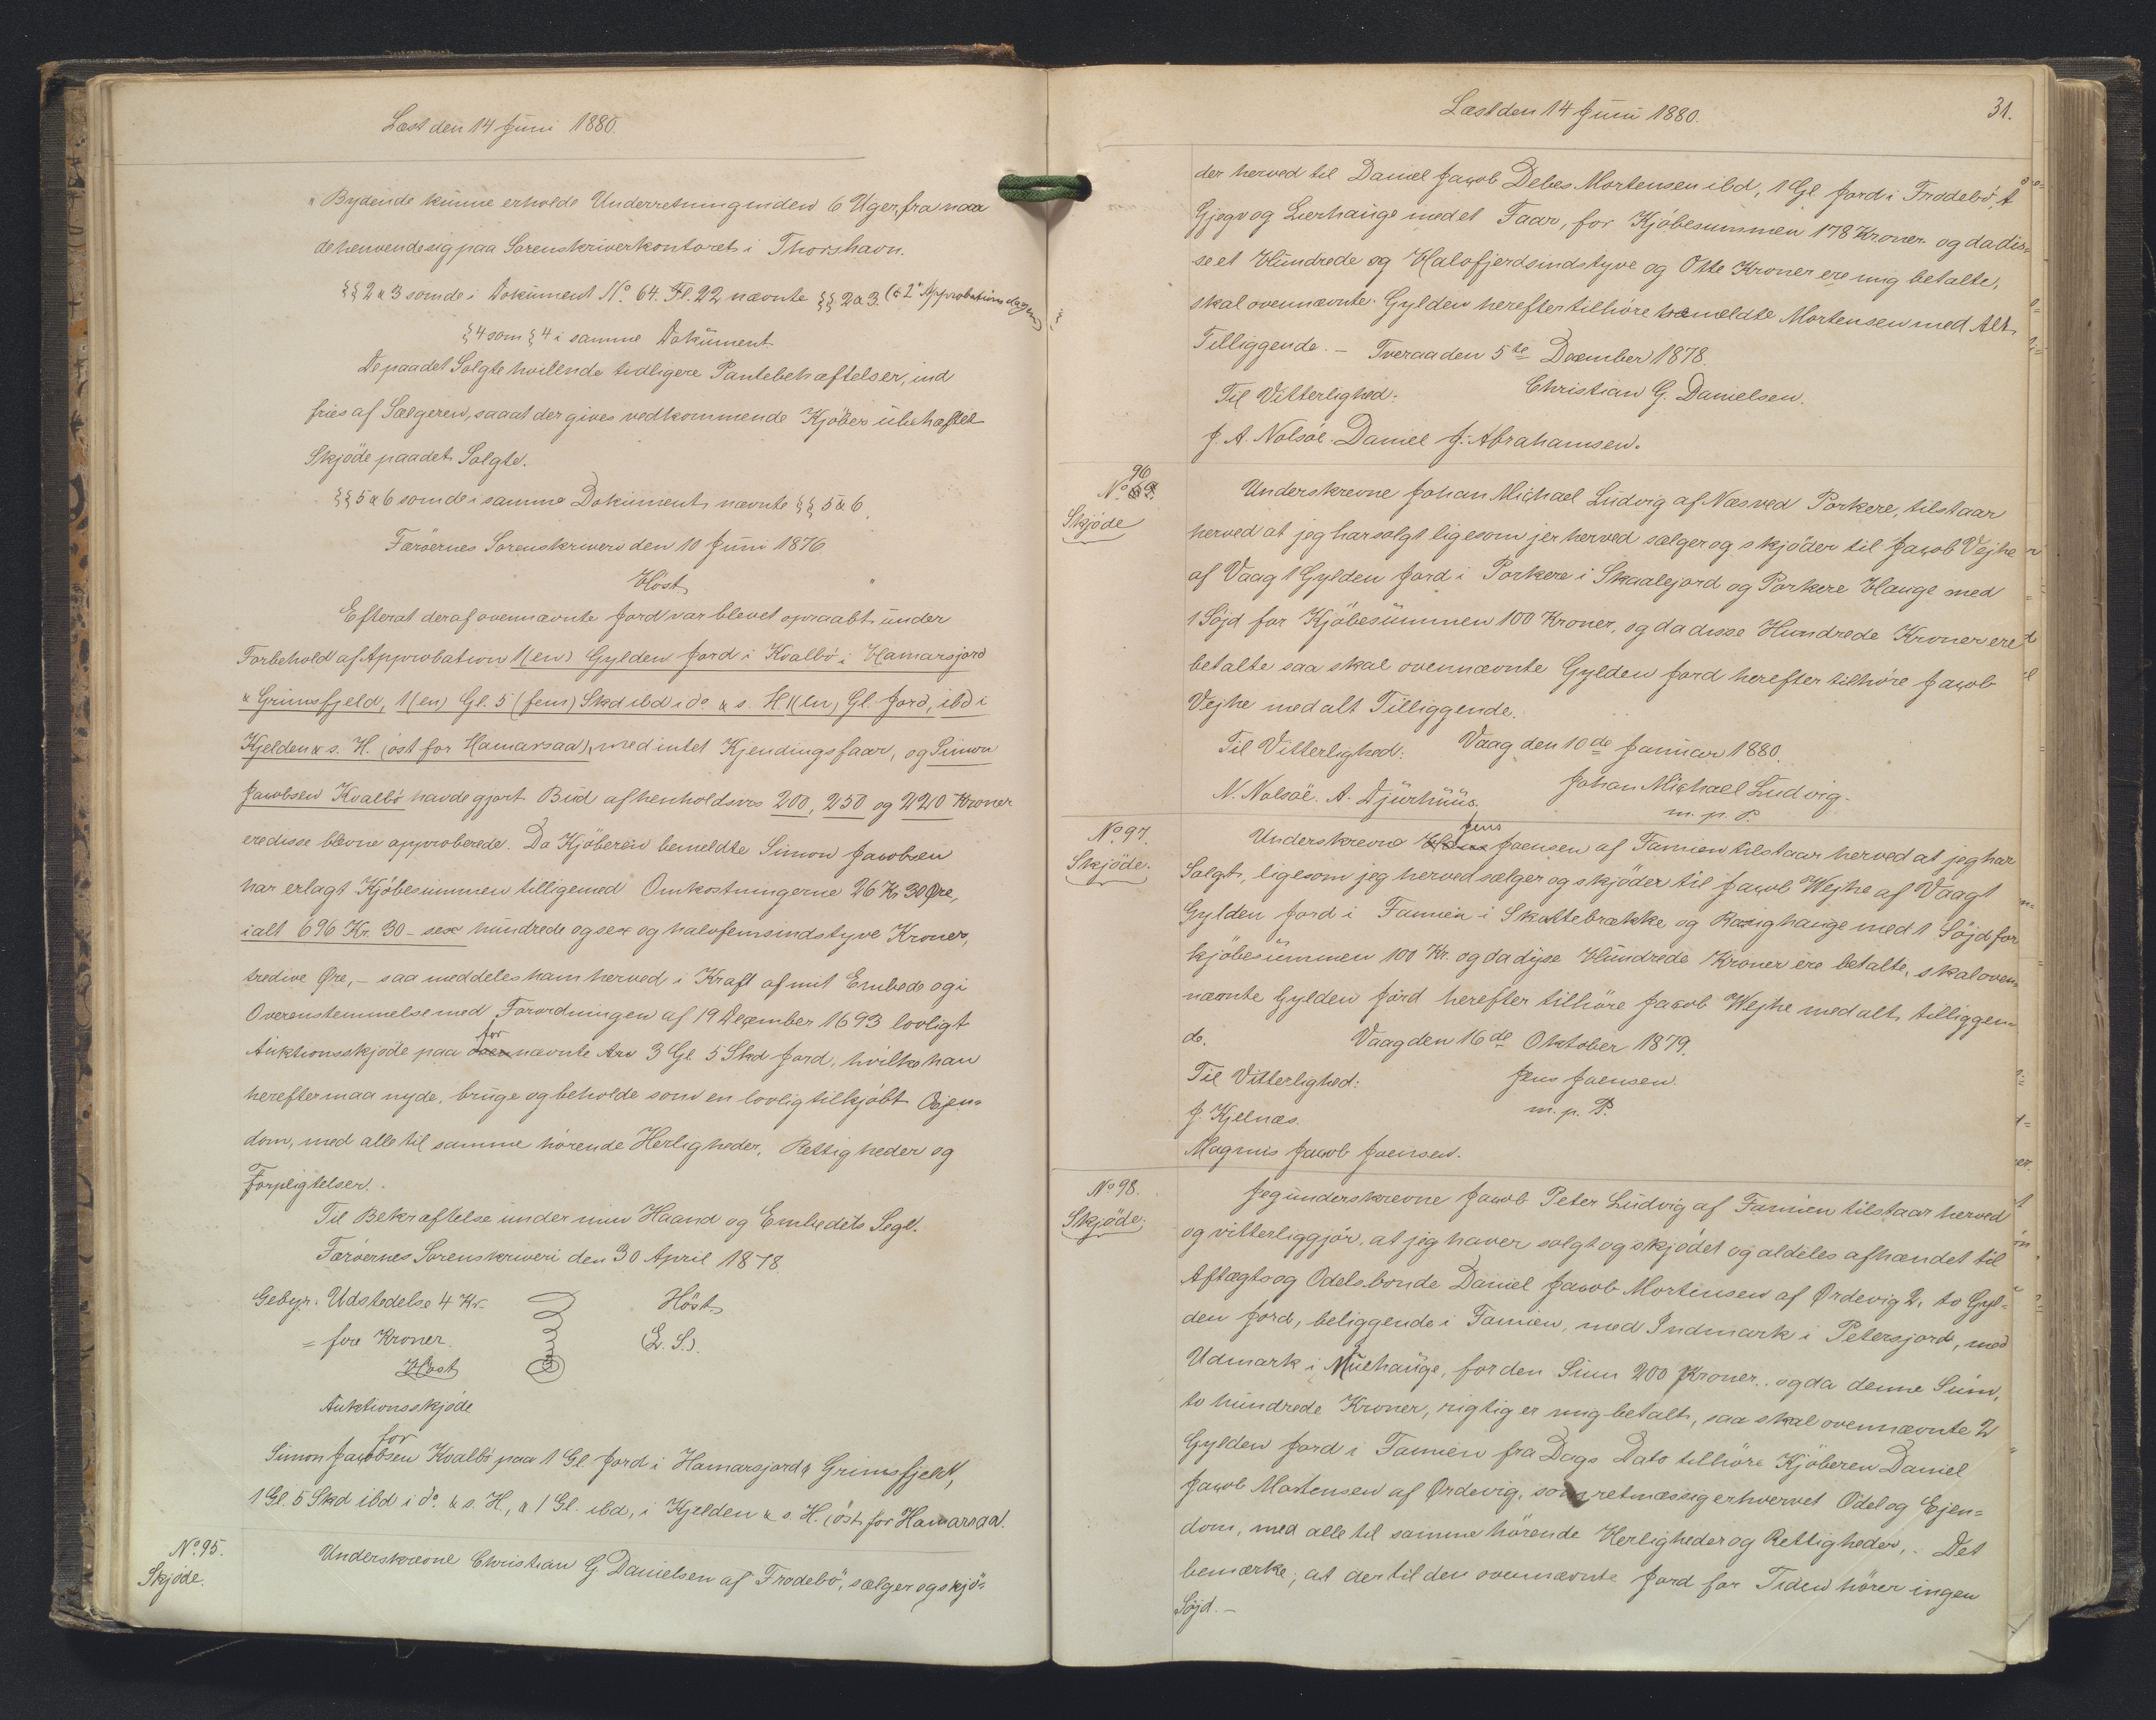 Læst den 14 Juni 1880.
"Bydende kunne erholde Underretning inden 6 Uger, fra naar
de henvende sig paa Sorenskriverkontoret i Thorshavn.
§§ 2 & 3 som de i Dokument No. 64. Fl. 22 nævnte §§ 2 a 3.
§ 4 som § 4 i samme Dokument
De paa det Solgte hvilende tidligere Pantebehæftelser, ind
fries af Sælgeren, saa at der gives vedkommende Kjøber ubehæftet
Skjøde paa det Solgte.
§§ 5 & 6 som de i samme Dokument nævnte §§ 5 & 6.
Færøernes Sorenskriveri den 10 Juni 1876.
Høst "
Efterat der af ovennævnte Jord var blevet opraabt under
Forbehold af Approbation 1 (en) Gylden Jord i Kvalbø i Hamarsjord
& Grimsfjeld, 1 (en) Gl. 5 (fem) Skd ibd i do. & s. H 1 (en) Gl. Jord, ibd i
Kjelden & s. H. (øst for Hamarsaa), med intet Kjendingsfaar, og Simon
Jacobsen Kvalbø havde gjort Bud af henholdsvis 200, 250 og 220 Kroner
ere disse blevne approberede. Da Kjøberen bemeldte Simon Jacobsen
har erlagt Kjøbesummen tilligemed Omkostningerne 26 Kr. 30 Øre,
ialt 696 Kr. 30 - sex hundrede og sex og halvfemsindstyve Kroner,
tredive Øre, - saa meddeles ham herved i Kraft af mit Embede og i
Overenstemmelse med Forordningen af 19 December 1693 lovligt
Auktionsskjøde paa fornævnte 3 Gl 5 Skd Jord, hvilke han
herefter maa nyde, bruge og beholde som en lovlig tilkjøbt Ejen=
dom, med alle til samme hørende Herligheder, Rettigheder og
Forpligtelser.
Til Bekræftelse under min Haand og Embedets Segl.
Færøernes Sorenskriveri den 30 April 1878.
Gebyr. Udstedelse 4 Kr. Høst
= fire Kroner. (L. S.)
Høst
Auktionsskjøde
for
Simon Jacobsen Kvalbø paa 1 Gl. Jord i Hamarsjord & Grimsfjeld,
1 Gl. 5 Skd ibd i do. & s. H., & 1 Gl. ibd, i Kjelden & s. H. (øst for Hamarsaa).
No. 95.
Skjøde.
Underskrevne Christian G. Danielsen af Frodebø, sælger og skjø=
Læst den 14 Juni 1880. 31.
der herved til Daniel Jacob Debes Mortensen ibd, 1 Gl. Jord i Frodebø
Gjegv og Lierhauge med et Faar, for Kjøbesummen 178 Kroner og da dis=
se et Hundrede og Halvfjerdsindstyve og Otte Kroner ere mig betalte,
skal ovennævnte Gylden herefter tilhøre bemeldte Mortensen med Alt
Tilliggende. - Tveraa den 5te December 1878.
Til Vitterlighed: Christian G. Danielsen.
J. A. Nolsøe. Daniel J. Abrahamsen.
No. 96
Skjøde
Underskrevne Johan Michael Ludvig af Næs ved Porkere, tilstaar
herved at jeg har solgt ligesom jer herved sælger og skjøder til Jacob Vejhe
af Vaag 1 Gylden Jord i Porkere i Skaalejord og Porkere Hauge med
1 Søjd for Kjøbesummen 100 Kroner, og da disse Hundrede Kroner ere
betalte saa skal ovennævnte Gylden Jord herefter tilhøre Jacob
Vejhe med alt Tilliggende.
Til Vitterlighed: Vaag den 10de Januar 1880.
N. Nolsøe. A. Djurhuus. Johan Michael Ludvig.
m. p. P.
No. 97.
Skjøde.
Underskrevne Jens Joensen af Famien tilstaar herved at jeg har
Solgt, ligesom jeg herved sælger og skjøder til Jacob Wejhe af Vaag 1
Gylden Jord i Famien i Skattebrække og hauge med 1 Søjd for
kjøbesummen 100 Kr. og da dyse Hundrede Kroner ere betalte, skal oven
nævnte Gylden Jord herefter tilhøre Jacob Wejhe med alt tilliggen=
de. Vaag den 16de Oktober 1879.
Til Vitterlighed: Jens Joensen.
J. Kjelnæs. m. p. P.
Magnus Jacob Joensen.
No. 98.
Skjøde.
Jeg underskrevne Jacob Peter Ludvig af Famien tilstaar herved
og vitterliggjør, at jeg haver solgt og skjødet og aldeles afhændet til
Aftægts og Odelsbonde Daniel Jacob Mortensen af Ørdevig 2, to Gyl=
den Jord, beliggende i Famien, med Indmark i Petersjord, med
Udmark i Muehauge, for den Sum 200 Kroner. og da denne Sum,
to hundrede Kroner, rigtig er mig betalt, saa skal ovennævnte 2
Gylden Jord i Famien fra Dags Dato tilhøre Kjøberen Daniel
Jacob Mortensen af Ørdevig, som retmæssig erhvervet Odel og Ejen=
dom, med alle til samme hørende Herligheder og Rettigheder. Det
bemærke, at der til den ovennævnte Jord for Tiden hører ingen
Søjd. -